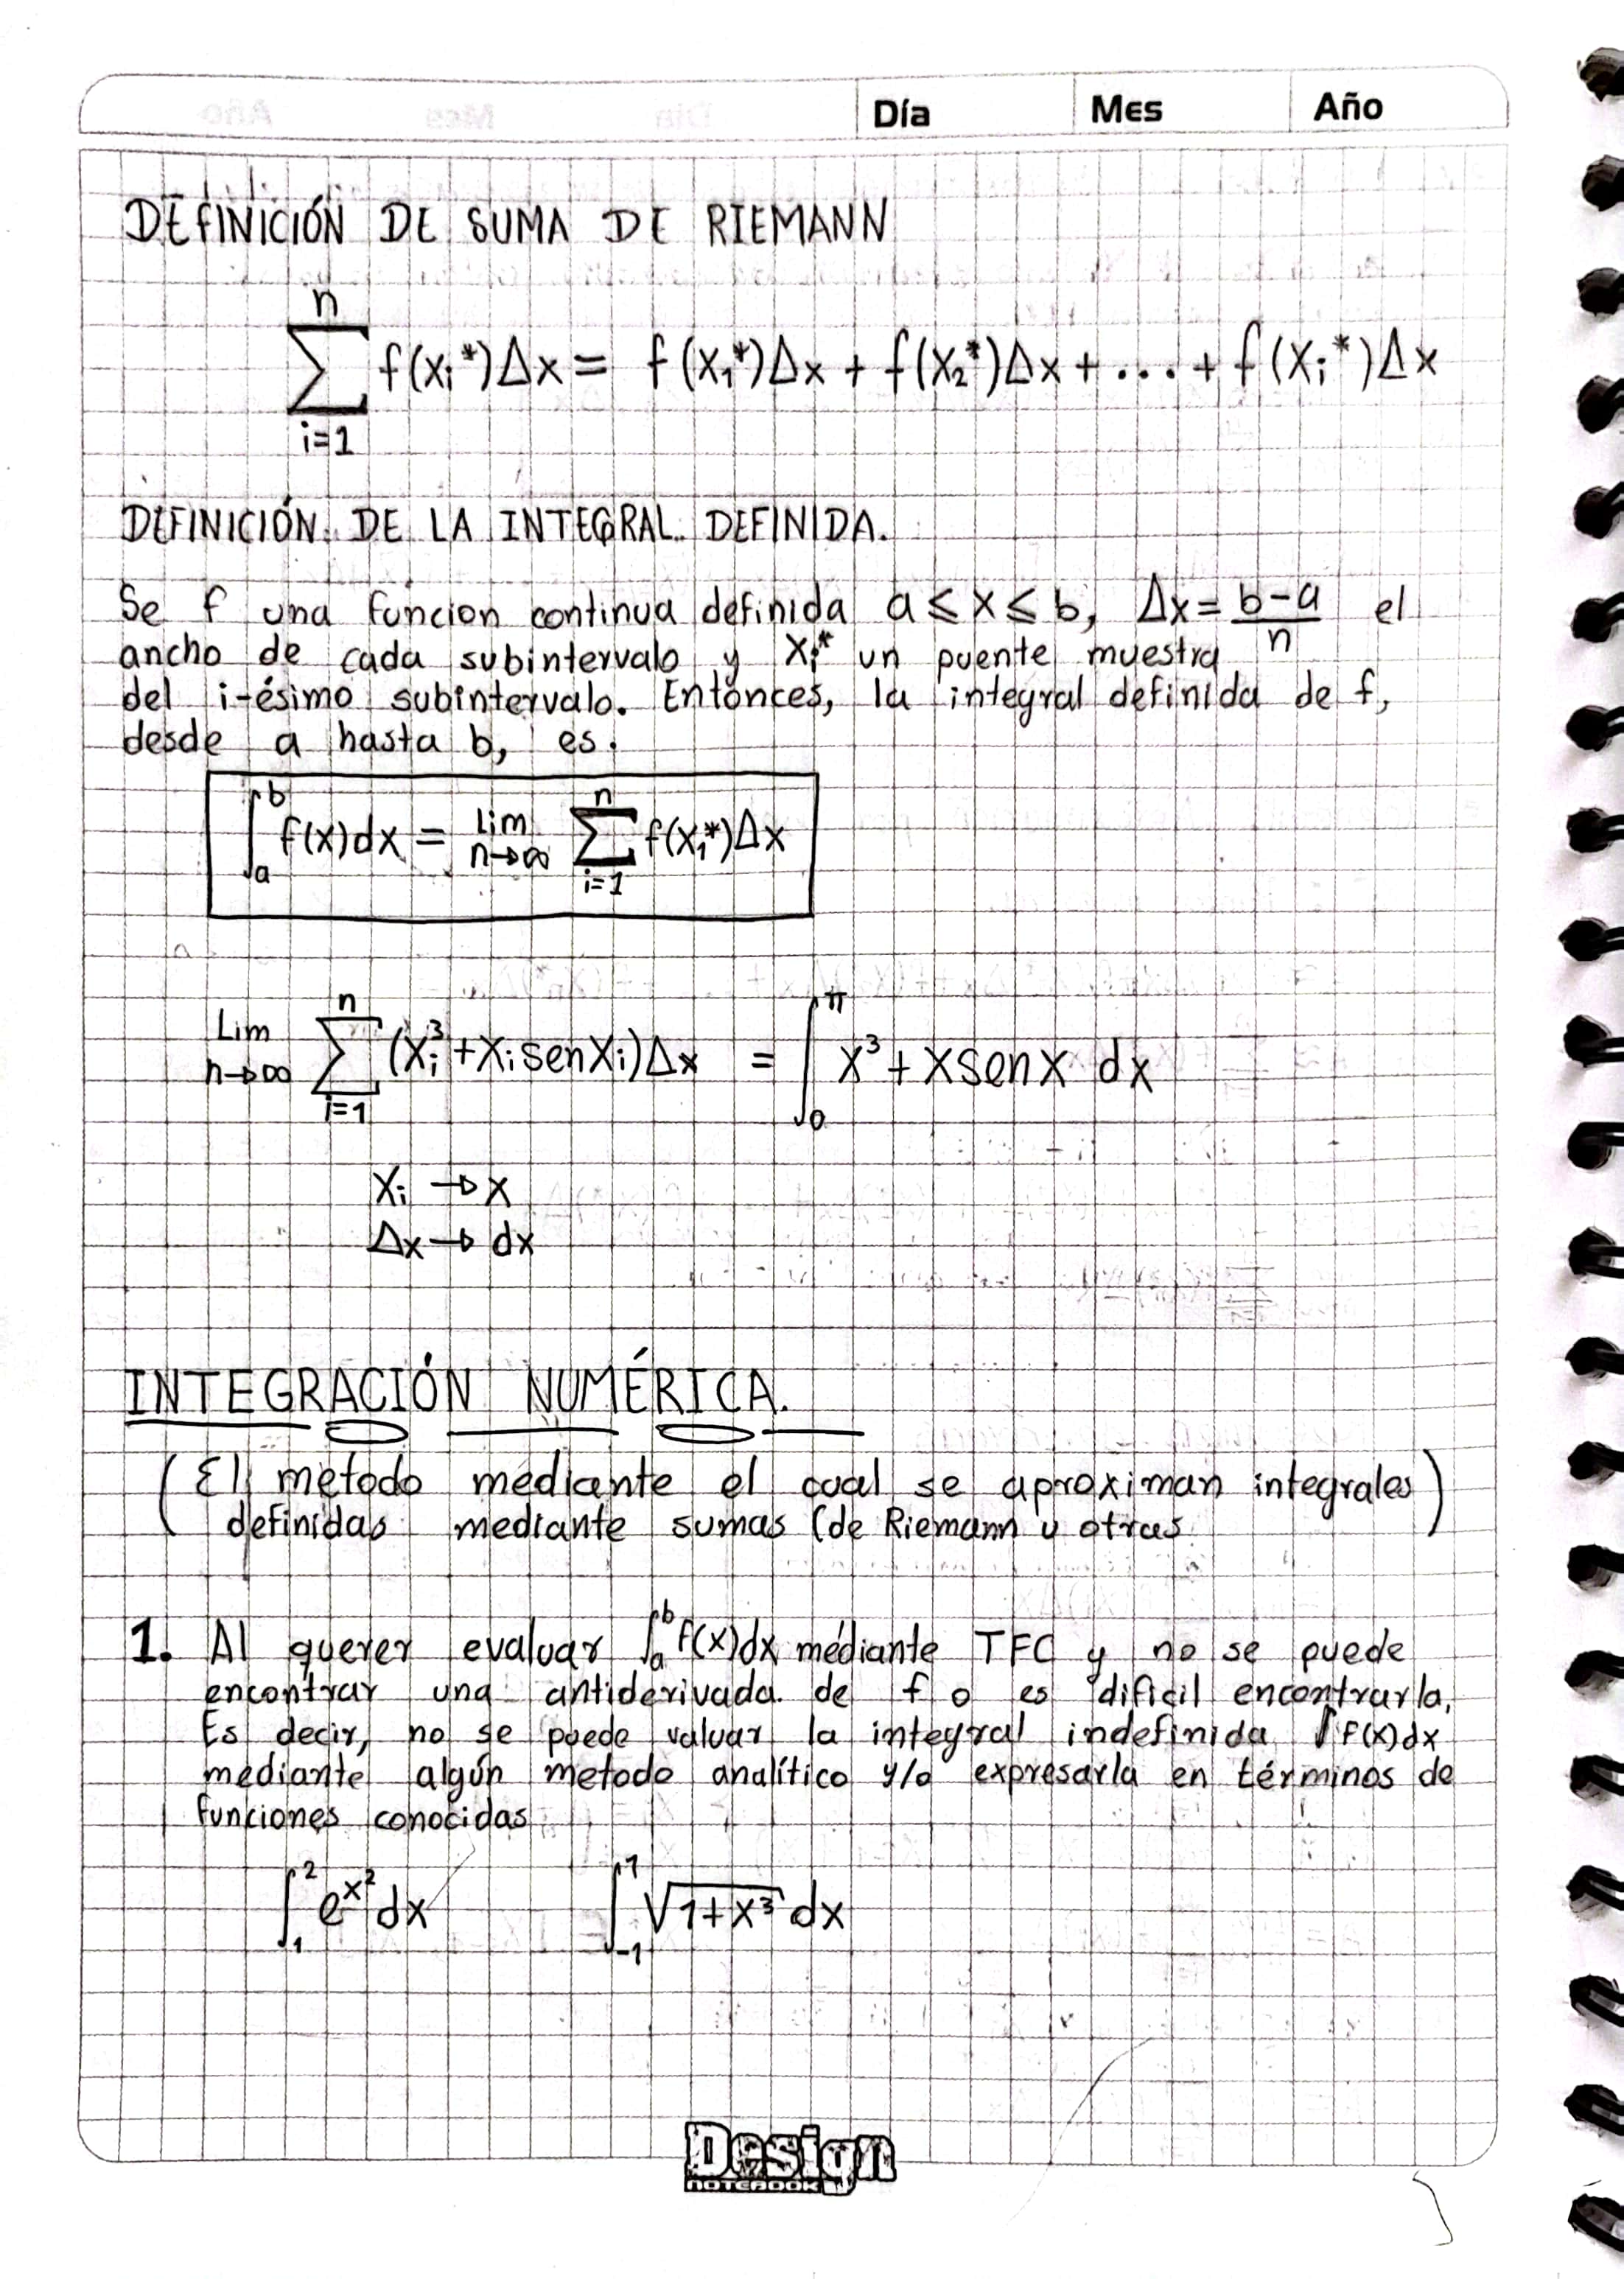 Día Mes Año
DEFINICIÓN DE SUMA DE RIEMANN
\sum_{i=1}^{n} f(x_i^*)Δx = f(x_1^*)Δx + f(x_2^*)Δx + ... + f(x_i^*)Δx
DEFINICIÓN DE LA INTEGRAL DEFINIDA.
Se f una funcion continua definida a ≤ x ≤ b, Δx = \frac{b-a}{n} el
ancho de cada subintervalo y x_i^* un puente muestra
del i-ésimo subintervalo. Entonces, la integral definida de f,
desde a hasta b, es.
\int_a^b f(x)dx = \lim_{n→∞} \sum_{i=1}^{n} f(x_1^*)Δx
\lim_{n→∞} \sum_{i=1}^{n} (x_i^3 + x_i sen x_i)Δx = \int_0^π x^3 + x sen x dx
x_i → x
Δx → dx
INTEGRACIÓN NUMÉRICA.
(El metodo mediante el cual se aproximan integrales)
definidas mediante sumas (de Riemann y otras
1. Al querer evaluar \int_a^b f(x)dx médiante TFC y no se puede
encontrar una antiderivada de f o es dificil encontrarla,
Es decir, no se puede valuar la integral indefinida ∫f(x)dx
mediante algún metodo analítico y/o expresarla en términos de
funciones conocidas
\int_1^2 e^{x^2} dx \int_{-1}^1 \sqrt{1+x^3} dx
Design
NOTEBOOK